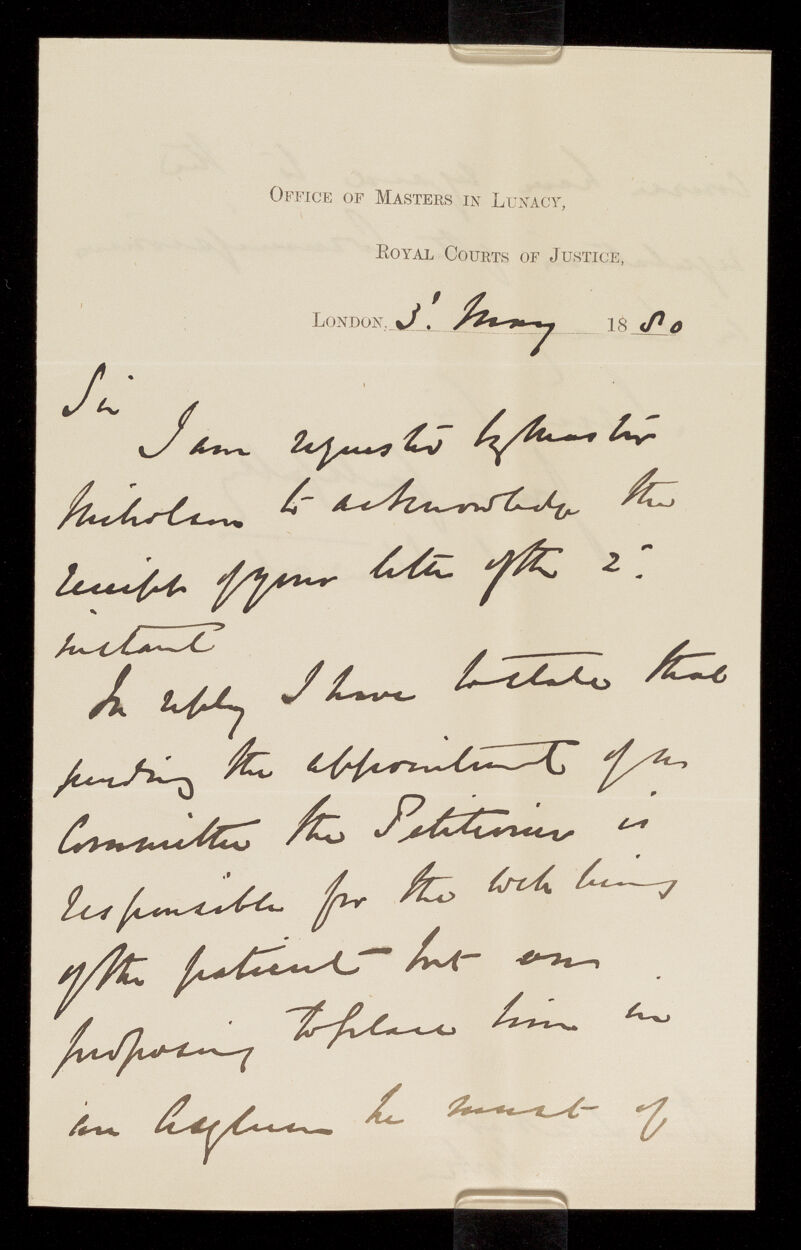 OFFICE OF MASTERS IN LUNACY,
ROYAL COURTS OF JUSTICE,
LONDON, 3' May 1880
Sir
I am requested by Master
Nicholson to acknowledge the
receipt of your letter of the 2"
instant
In reply I have to state that
pending the appointment of a
Committee the Petitioner is
responsible for the well being
of the patient but on
proposing to place him in
an Asylum he must of